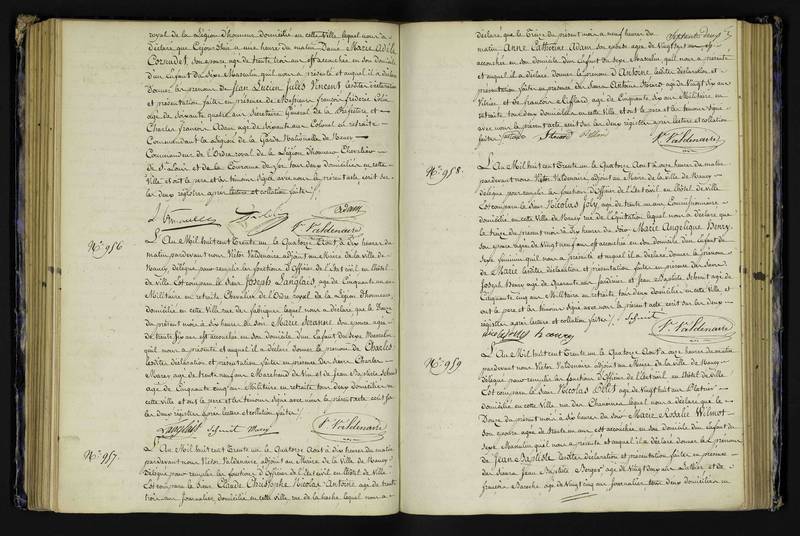 royal de la Légion d'honneur domicilié en cette Ville lequel nous a
déclaré que Cejourd'hui à une heure du matin Dame Marie Adèle
son épouse âgée de trente trois ans est accouchée en son domicile
d'un Enfant du Sexe Masculin qu'il nous a présenté et auquel il a déclaré
donner les prénoms de Jean Lucien Jules Vincent lesdites déclaration
et présentation faites en présence de Messieurs françois frédéric
âgé de soixante quatre ans Secrétaire Général de la Préfecture et
Charles françois Adam âgé de soixante ans Colonel en retraite
Commandant la Légion de la Garde Nationale de Nancy
Commandeur de l'Ordre royal de la Légion d'honneur Chevalier
de St Louis et de la Couronne de fer tous deux domiciliés en cette
Ville et ont les père et témoins signé avec nous le présent acte, écrit sur
les deux registres après lecture et collation faites
Adam
Vr Valdenaire
No 956
L'An Mil huit cent Trente un le Quatorze Août à dix heures du
matin pardevant nous Victor Valdenaire adjoint au Maire de la ville de
Nancy délégué pour remplir les fonctions d'Officier de l'Etat civil en l'hôtel
de Ville Est comparu le Sieur Joseph Langlais âgé de Cinquante ans
Militaire en retraite Chevalier de l'Ordre royal de la Légion d'honneur
domicilié en cette Ville rue des fabriques lequel nous a déclaré que le Douze
du présent mois à dix heures du soir Marie son épouse âgée
de trente six ans est accouchée en son domicile d'un Enfant du Sexe Masculin
qu'il nous a présenté et auquel il a déclaré donner le prénom de Charles
lesdites déclaration et présentation faites en présence des Sieurs Charles
Marey âgé de trente neuf ans Marchand de Vin et de Jean Baptiste
âgé de Cinquante cinq ans Militaire en retraite tous deux domiciliés en
cette Ville et ont les père et les témoins signé avec nous le présent acte écrit sur
les deux registres après lecture et collation faites
Langlais Schmit Marey
Vr Valdenaire
No 957
L'An Mil huit cent Trente un le Quatorze Août à dix heures du matin
pardevant nous Victor Valdenaire adjoint au Maire de la Ville de Nancy
délégué pour remplir les fonctions d'Officier de l'Etat civil en l'hôtel de Ville
Est comparu le Sieur Claude Christophe Nicolas Antoine âgé de trente
trois ans Journalier domicilié en cette ville, rue de la hache lequel nous a
déclaré que le Treize du présent mois à neuf heures du
matin Anne Catherine Adam son épouse âgée de Vingt
accouchée en son domicile d'un Enfant du Sexe Masculin qu'il nous a présenté
et auquel il a déclaré donner le prénom d'Antoine lesdites déclaration et
présentation faites en présence des Sieurs Antoine âgé de Vingt six ans
et de françois âgé de Cinquante six ans Militaire en
retraite tous deux domiciliés en cette Ville et ont les père et les témoins signé
avec nous le présent acte écrit sur les deux registres après lecture et collation
faites
Vr Valdenaire
No 958
L'An Mil huit cent Trente un le Quatorze Août à onze heures du matin
pardevant nous Victor Valdenaire, adjoint au Maire de la Ville de Nancy
délégué pour remplir les fonctions d'Officier de l'Etat civil en l'hôtel de Ville
Est comparu le Sieur Nicolas Joly âgé de trente un ans Commissionnaire
domicilié en cette Ville de Nancy rue de l'Equitation lequel nous a déclaré que
le treize du présent mois à dix heures du soir Marie Angélique Henry
son épouse âgée de Vingt neuf ans est accouchée en son domicile d'un Enfant du
Sexe féminin qu'il nous a présenté et auquel il a déclaré donner le prénom
de Marie lesdites déclaration et présentation faites en présence des Sieurs
Joseph Henry âgé de Quarante ans Jardinier et Jean Baptiste âgé de
Cinquante cinq ans Militaire en retraite tous deux domiciliés en cette Ville et
ont les père et les témoins signé avec nous le présent acte écrit sur les deux
registres après lecture et collation faites Schmit
Vr Valdenaire
No 959
L'An Mil huit cent Trente un le Quatorze Août à onze heures du matin
pardevant nous Victor Valdenaire adjoint au Maire de la Ville de Nancy
délégué pour remplir les fonctions d'Officier de l'Etat civil en l'hôtel de Ville
Est comparu le Sieur Nicolas âgé de Vingt huit ans
domicilié en cette Ville rue des Chanoines lequel nous a déclaré que le
Douze du présent mois à dix heures du soir Marie Rosalie Wilmot
son épouse âgée de trente un ans est accouchée en son domicile d'un Enfant du
Sexe Masculin qu'il nous a présenté et auquel il a déclaré donner les prénoms
de Jean Baptiste lesdites déclaration et présentation faites en présence
des Sieurs Jean Baptiste âgé de Vingt deux ans et de
françois âgé de Vingt cinq ans Journalier tous deux domiciliés en